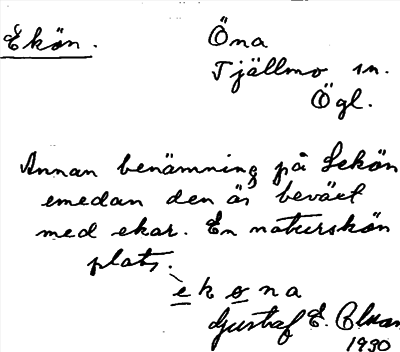 Ekön. Öna
Tjällmo sn.
Ögl.
Annan benämning på Lekön
emedan den är beväxt
med ekar. En naturskön
plats.
ekona
Gustaf E.
1930